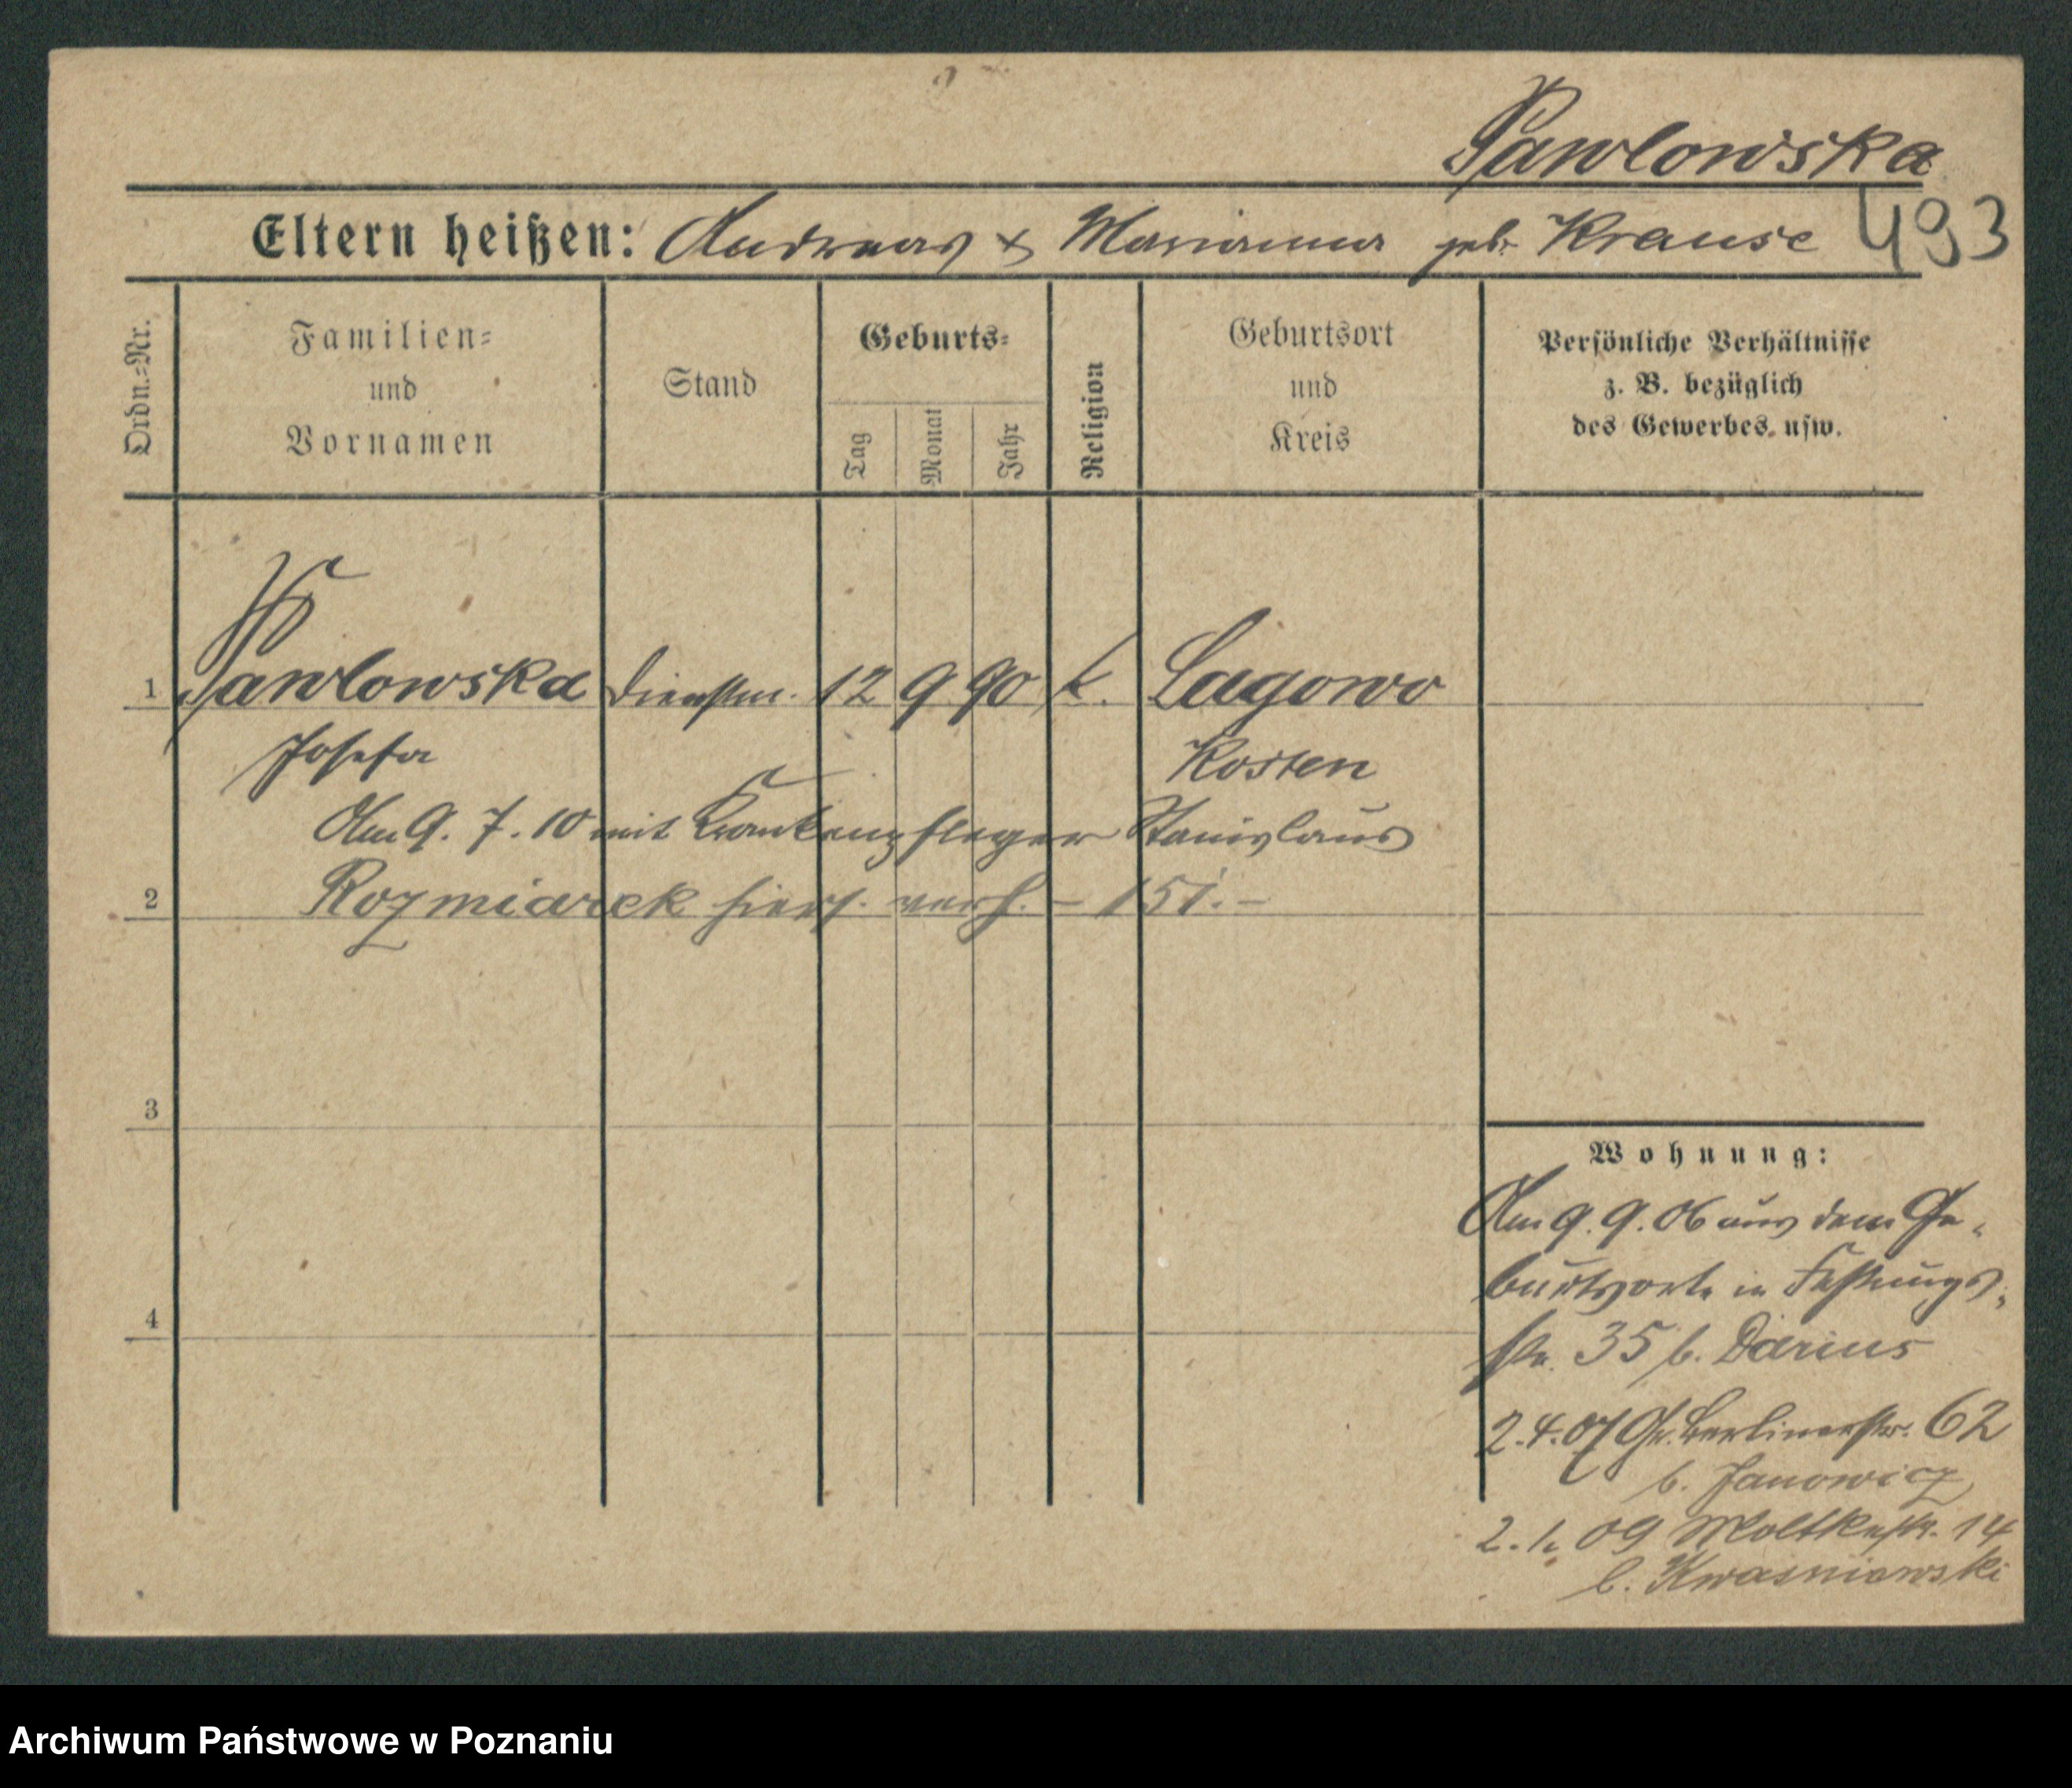 Pawlowska
Eltern heißen: Andreas & Marianna geb. Krause 493
Ordn.=Nr.
Familien=
und
Vornamen
Stand
Geburts=
Tag
Monat
Jahr
Religion
Geburtsort
und
Kreis
Persönliche Verhältnisse
z. B. bezüglich
des Gewerbes usw.
1 Pawlowska Dienstm. 12 9 90 k. Lagowo
Josefa Kosten
Am 9. 7. 10 mit Krankenpfleger Stanislaus
2 Rozmiarek hiers. verh. – 151. –
3
4
Wohnung:
Am 9. 9. 06 aus dem Ge-
burtsorte in Festungs-
str. 35 b. Darius
2.4.07 Gr. Berlinerstr. 62
b. Janowicz
2.1.09 Moltkestr. 14
b. Kwasniewski
Archiwum Państwowe w Poznaniu